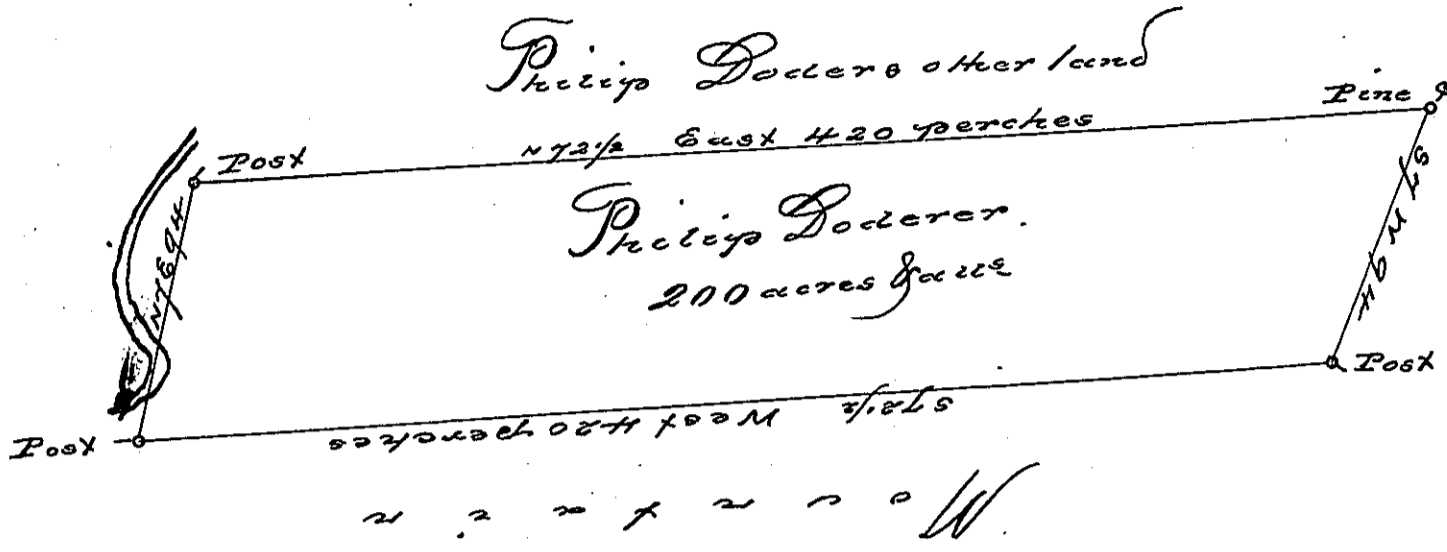 Philip Doders other land
Pine
Post
N 72 1/2 East 420 perches
N 7 E 94
Philip Doderer.
200 acres & alls
S 7 W 94
Post
S 72 1/2 West 420 perches
Post
Mountain